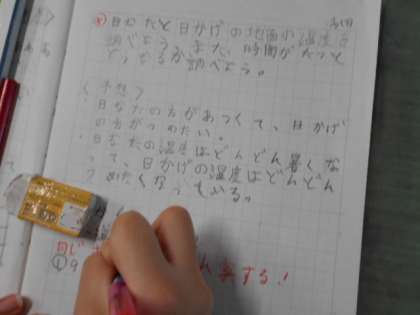 日なたと日かげの地面の温度を
調べよう。また、時間がたつと
どうなるか調べよう。
(予想)
・日なたの方があつくて、日かげ
の方がつめたい。
・日なたの温度はどんどん暑くな
って、日かげの温度はどんどん
つめたくなっている。
同じ
① 9
する!